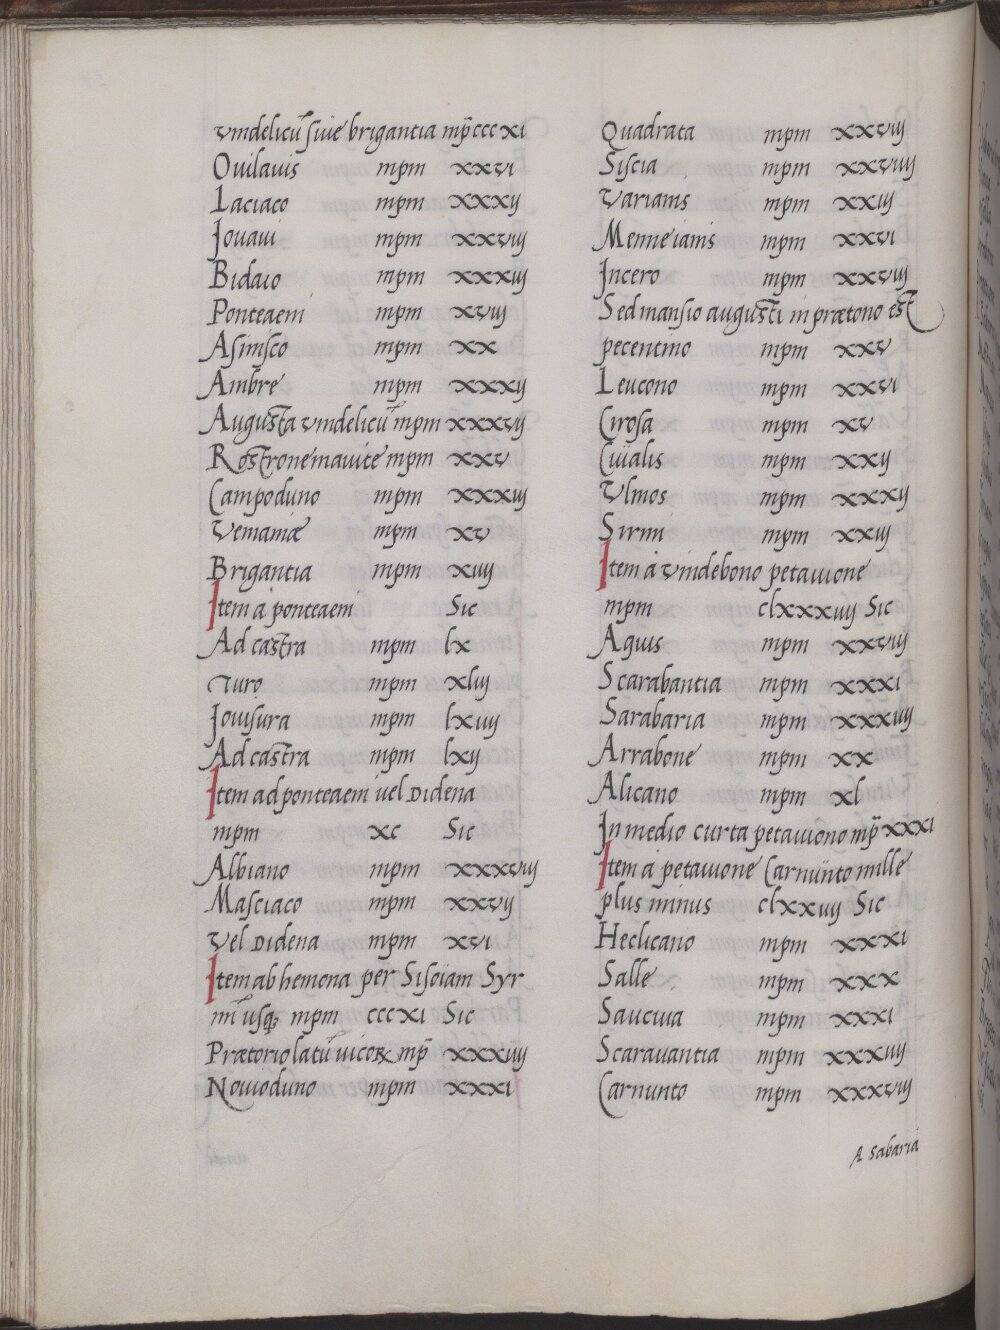 vindelicū siue brigantia mp̄cccxi
Ouilauis mpm xxvi
Laciaco mpm xxxij
Jouaui mpm xxviij
Bidaio mpm xxxiij
Ponteaeni mpm xviij
Asinisco mpm xx
Ambre mpm xxxij
Augusta vindelicū mpm xxxvij
Rostronemauite mpm xxv
Campoduno mpm xxxiij
Vemamæ mpm xv
Brigantia mpm xiiij
Item a ponteaeni Sic
Ad castra mpm lx
Turo mpm xliij
Jouisura mpm lxiiij
Ad castra mpm lxij
Item ad ponteaeni uel Didena
mpm xc Sic
Albiano mpm xxxviij
Masciaco mpm xxvij
Vel Didena mpm xvi
Item ab hemona per Sisciam Syr
mī usq; mpm cccxi Sic
Prætorio latū uicoꝝ mp̄ xxxiiij
Nouioduno mpm xxxi
Quadrata mpm xxviij
Siscia mpm xxviiij
Varianis mpm xxiij
Menneianis mpm xxvi
Incero mpm xxviij
Sed mansio augusti in prætorio est
pecentino mpm xxv
Leucono mpm xxvi
Cirosa mpm xv
Cuialis mpm xxij
Vlmos mpm xxxij
Sirmi mpm xxiij
Item a vindebono petauione
mpm clxxxiiij Sic
Aquis mpm xxviij
Scarabantia mpm xxxi
Sarabaria mpm xxxiiij
Arrabone mpm xx
Alicano mpm xl
In medio curta petauiono mp̄ xxxi
Item a petauione Carnunto mille
plus minus clxxiiij Sic
Heclicano mpm xxxi
Salle mpm xxx
Saucuia mpm xxxi
Scarauantia mpm xxxiiij
Carnunto mpm xxxviij
A Sabaria